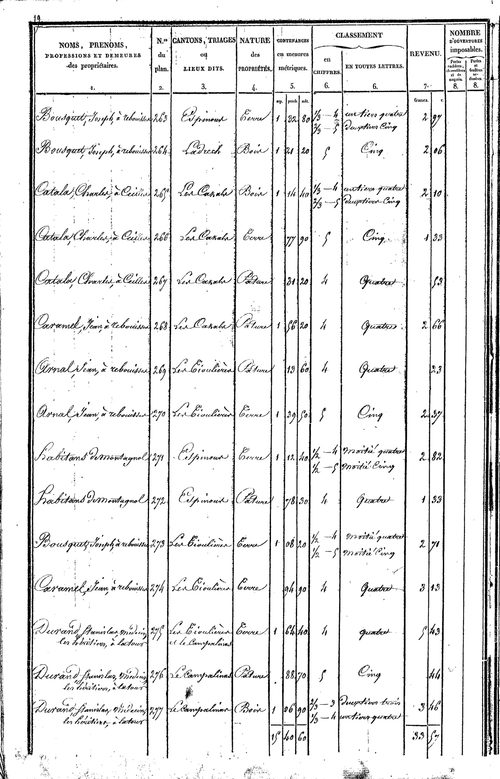 NOMS, PRENOMS,
PROFESSIONS ET DEMEURES
des propriétaires.
1.
N.os
du
plan.
2.
CANTONS, TRIAGES
ou
LIEUX DITS.
3.
NATURE
des
PROPRIÉTÉS.
4.
CONTENANCES
en mesures
métriques.
5.
CLASSEMENT
en
CHIFFRES.
6.
EN TOUTES LETTRES.
6.
REVENU.
7.
NOMBRE
D'OUVERTURES
imposables.
8. 8.
francs. c.
Bousquet, Joseph, à rebouisse 263 Espinous Terre 1 32 80 1/3 — 4 un tiers quatre 2 97
2/3 — 5 deux tiers Cinq
Bousquet, Joseph, à rebouisse 264 Ladrech Bois 1 21 20 5 Cinq 2 06
Catala, Charles, à Ceilles 265 Les Cazals Bois 1 14 40 1/3 — 4 un tiers quatre 2 10
2/3 — 5 deux tiers Cinq
Catala, Charles, à Ceilles 266 Les Cazals Terre 77 90 5 Cinq 1 33
Catala, Charles, à Ceilles 267 Les Cazals Pâture 31 20 4 Quatre 53
Caramel, Jean, à rebouisse 268 Les Cazals Pâture 1 56 20 4 Quatre 2 66
Arnal, Jean, à rebouisse 269 Les Tioulières Pâture 13 60 4 Quatre 23
Arnal, Jean, à rebouisse 270 Les Tioulières Terre 1 39 50 5 Cinq 2 37
habitans de montagnol 271 Espinous Terre 1 12 40 1/2 — 4 moitié quatre 2 82
1/2 — 5 moitié Cinq
habitans de montagnol 272 Espinous Pâture 78 30 4 Quatre 1 33
Bousquet, Joseph, à rebouisse 273 Les Tioulières Terre 1 08 20 1/2 — 4 moitié quatre 2 71
1/2 — 5 moitié Cinq
Caramel, Jean, à rebouisse 274 Les Tioulières Terre 94 90 4 Quatre 3 13
Durand, Stanislas, médecin, 275 Les Tioulières Terre 1 64 40 4 quatre 5 43
les héritiers, à latour et le Campalinas
Durand, Stanislas, médecin, 276 Le Campalinas Pâture 88 70 5 Cinq 44
les héritiers, à latour
Durand, Stanislas, médecin, 277 Le Campalinas Bois 1 06 90 2/3 — 3 deux tiers trois 3 46
les héritiers, à latour 1/3 — 4 un tiers quatre
15 40 60 33 57